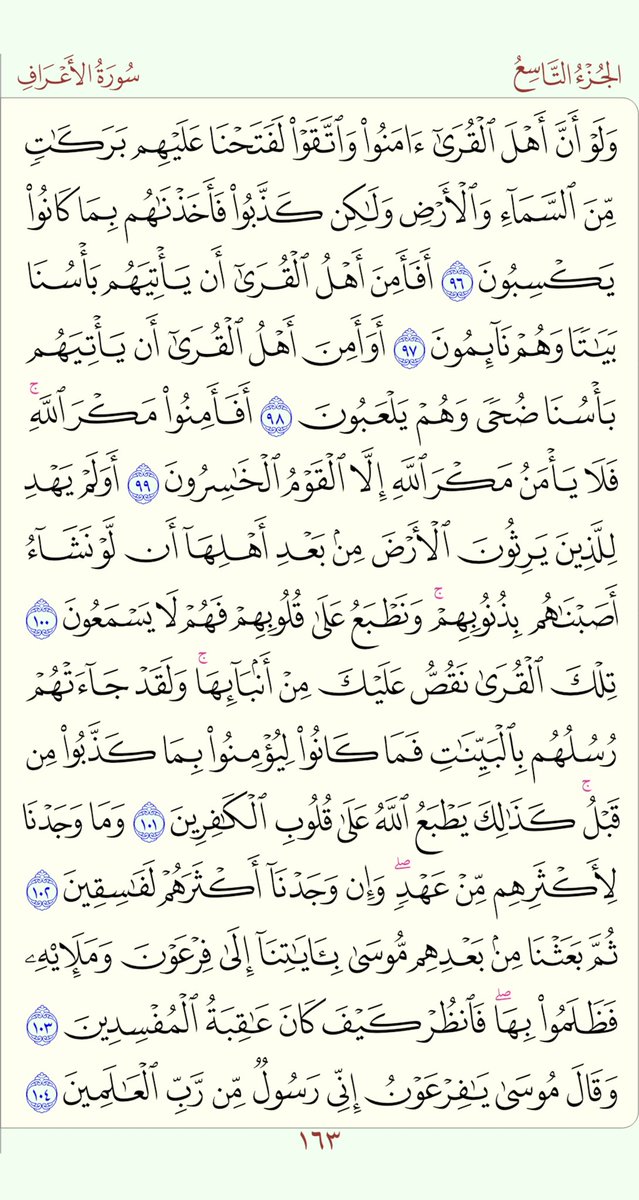 الجُزْءُ التَّاسِعُ
سُورَةُ الأَعْرَافِ
وَلَوْ أَنَّ أَهْلَ ٱلْقُرَىٰٓ ءَامَنُوا۟ وَٱتَّقَوْا۟ لَفَتَحْنَا عَلَيْهِم بَرَكَٰتٍ
مِّنَ ٱلسَّمَآءِ وَٱلْأَرْضِ وَلَٰكِن كَذَّبُوا۟ فَأَخَذْنَٰهُم بِمَا كَانُوا۟
يَكْسِبُونَ ٩٦ أَفَأَمِنَ أَهْلُ ٱلْقُرَىٰٓ أَن يَأْتِيَهُم بَأْسُنَا
بَيَٰتًا وَهُمْ نَآئِمُونَ ٩٧ أَوَأَمِنَ أَهْلُ ٱلْقُرَىٰٓ أَن يَأْتِيَهُم
بَأْسُنَا ضُحًى وَهُمْ يَلْعَبُونَ ٩٨ أَفَأَمِنُوا۟ مَكْرَ ٱللَّهِ ۚ
فَلَا يَأْمَنُ مَكْرَ ٱللَّهِ إِلَّا ٱلْقَوْمُ ٱلْخَٰسِرُونَ ٩٩ أَوَلَمْ يَهْدِ
لِلَّذِينَ يَرِثُونَ ٱلْأَرْضَ مِنۢ بَعْدِ أَهْلِهَآ أَن لَّوْ نَشَآءُ
أَصَبْنَٰهُم بِذُنُوبِهِمْ ۚ وَنَطْبَعُ عَلَىٰ قُلُوبِهِمْ فَهُمْ لَا يَسْمَعُونَ ١٠٠
تِلْكَ ٱلْقُرَىٰ نَقُصُّ عَلَيْكَ مِنْ أَنۢبَآئِهَا ۚ وَلَقَدْ جَآءَتْهُمْ
رُسُلُهُم بِٱلْبَيِّنَٰتِ فَمَا كَانُوا۟ لِيُؤْمِنُوا۟ بِمَا كَذَّبُوا۟ مِن
قَبْلُ ۚ كَذَٰلِكَ يَطْبَعُ ٱللَّهُ عَلَىٰ قُلُوبِ ٱلْكَٰفِرِينَ ١٠١ وَمَا وَجَدْنَا
لِأَكْثَرِهِم مِّنْ عَهْدٍ ۖ وَإِن وَجَدْنَآ أَكْثَرَهُمْ لَفَٰسِقِينَ ١٠٢
ثُمَّ بَعَثْنَا مِنۢ بَعْدِهِم مُّوسَىٰ بِـَٔايَٰتِنَآ إِلَىٰ فِرْعَوْنَ وَمَلَإِي۟هِۦ
فَظَلَمُوا۟ بِهَا ۖ فَٱنظُرْ كَيْفَ كَانَ عَٰقِبَةُ ٱلْمُفْسِدِينَ ١٠٣
وَقَالَ مُوسَىٰ يَٰفِرْعَوْنُ إِنِّى رَسُولٌ مِّن رَّبِّ ٱلْعَٰلَمِينَ ١٠٤
١٦٣